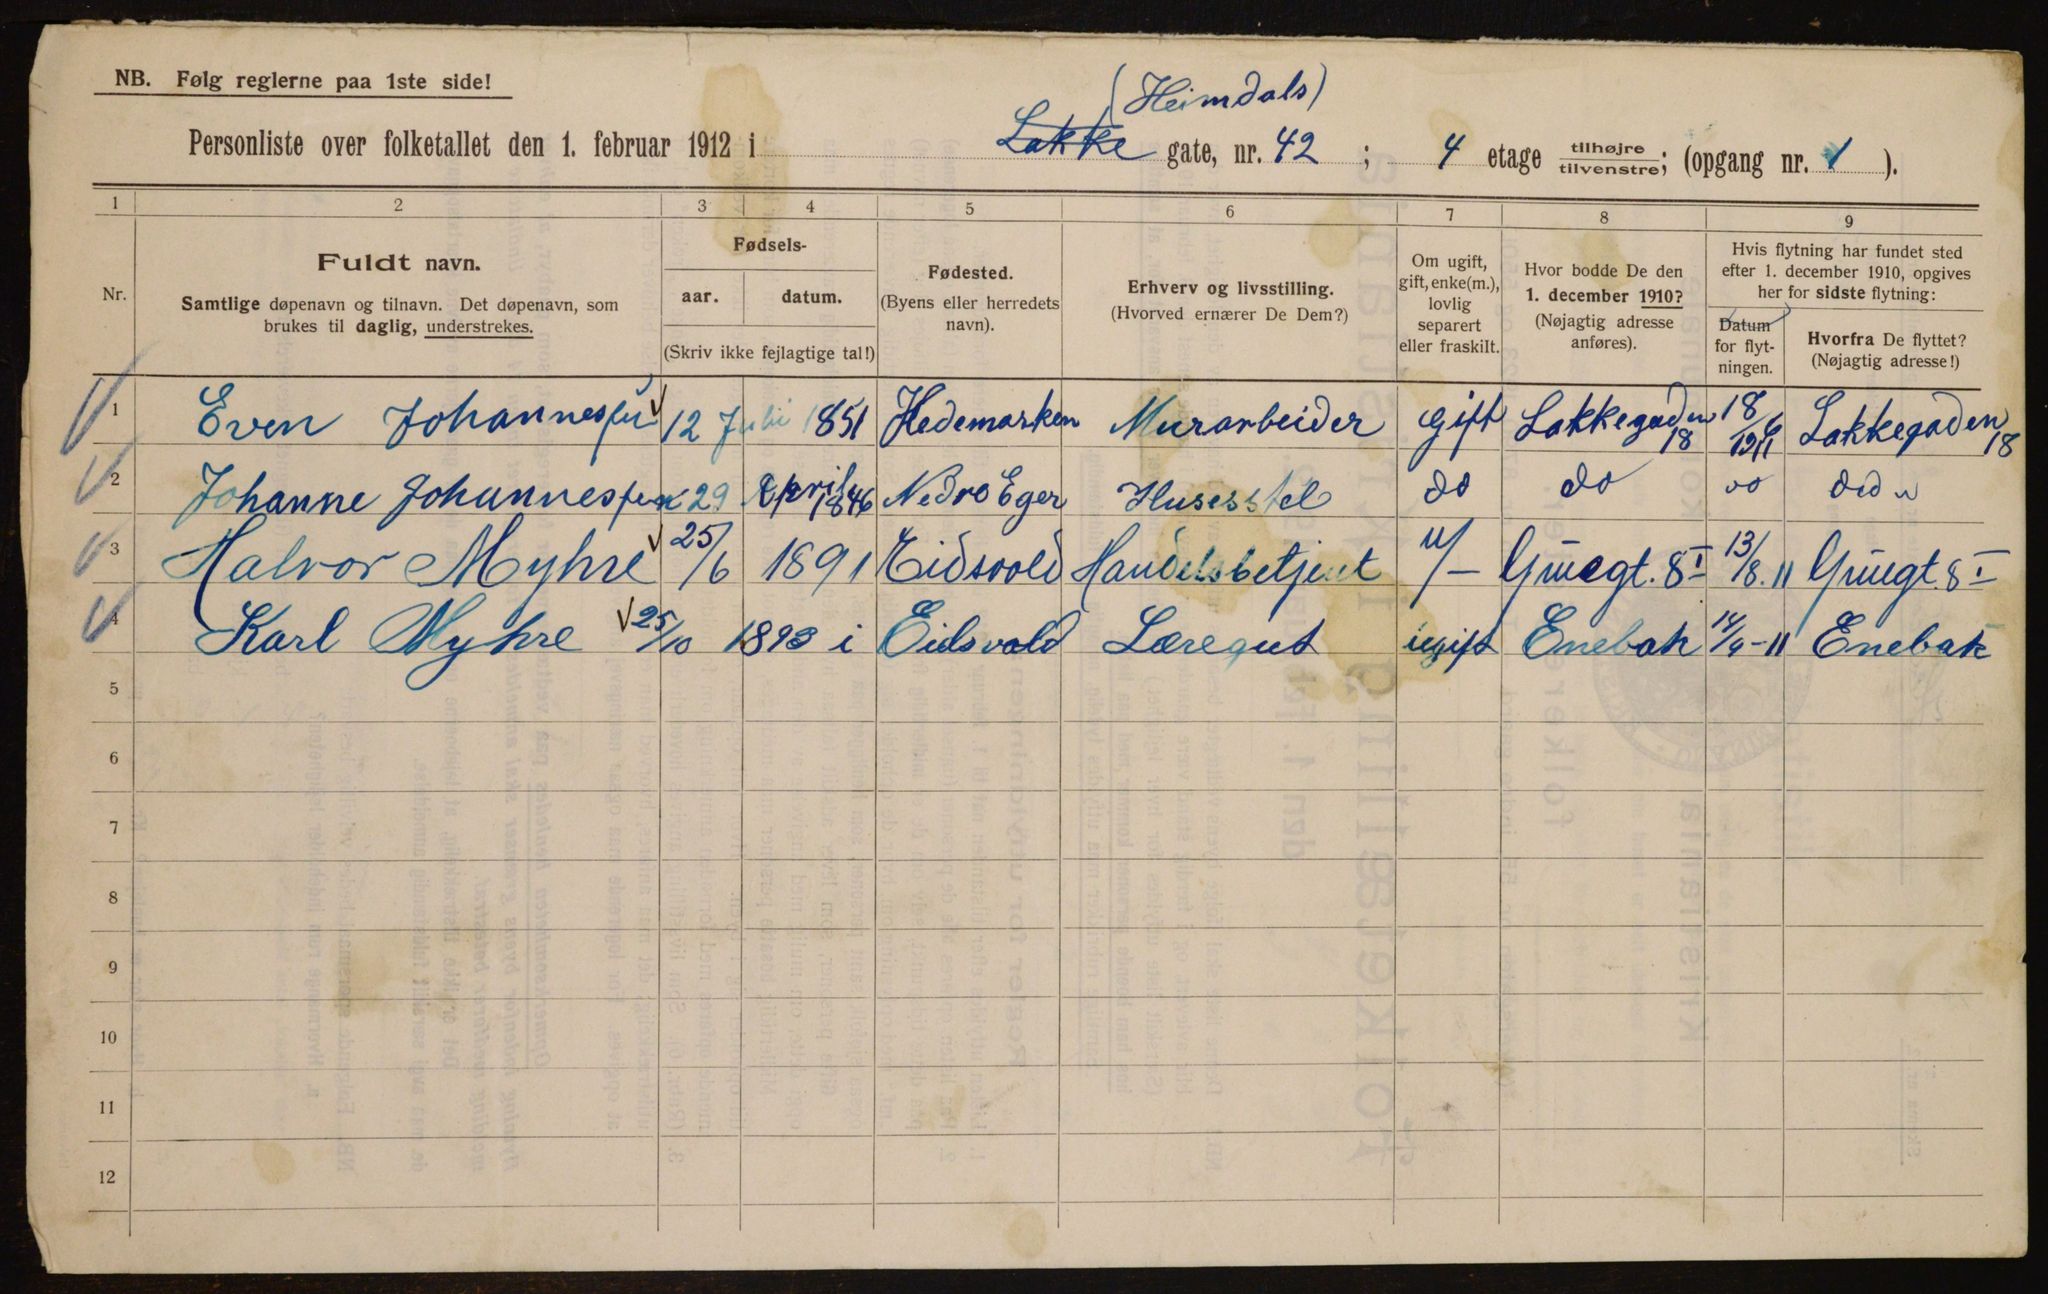 NB. Følg reglerne paa 1ste side!
(Heimdals)
Personliste over folketallet den 1. februar 1912 i Lakke gate, nr. 42 ; 4 etage tilhøjre tilvenstre; (opgang nr. 1 ).
1 2 3 4 5 6 7 8 9
Nr.
Fuldt navn.
Samtlige døpenavn og tilnavn. Det døpenavn, som
brukes til daglig, understrekes.
Fødsels-
aar. datum.
(Skriv ikke fejlagtige tal!)
Fødested.
(Byens eller herredets
navn).
Erhverv og livsstilling.
(Hvorved ernærer De Dem?)
Om ugift,
gift, enke(m.),
lovlig
separert
eller fraskilt.
Hvor bodde De den
1. december 1910?
(Nøjagtig adresse
anføres).
Hvis flytning har fundet sted
efter 1. december 1910, opgives
her for sidste flytning:
Datum
for flyt-
ningen.
Hvorfra De flyttet?
(Nøjagtig adresse!)
1 Even 12 Juli 1851 Hedemarken Murarbeider Gift Lakkegaden 18 Lakkegaden 18
2 Johanne 29 April 1846 Nedre Eger Husesstel do do do
3 Halvor Myhre 25/6 1891 Eidsvold Handelsbetjent 8 I 13/8.11 8 I
4 Karl Myhre 25/10 1893 i Eidsvold Læregut ugift Enebak 14/9-11 Enebak
5
6
7
8
9
10
11
12